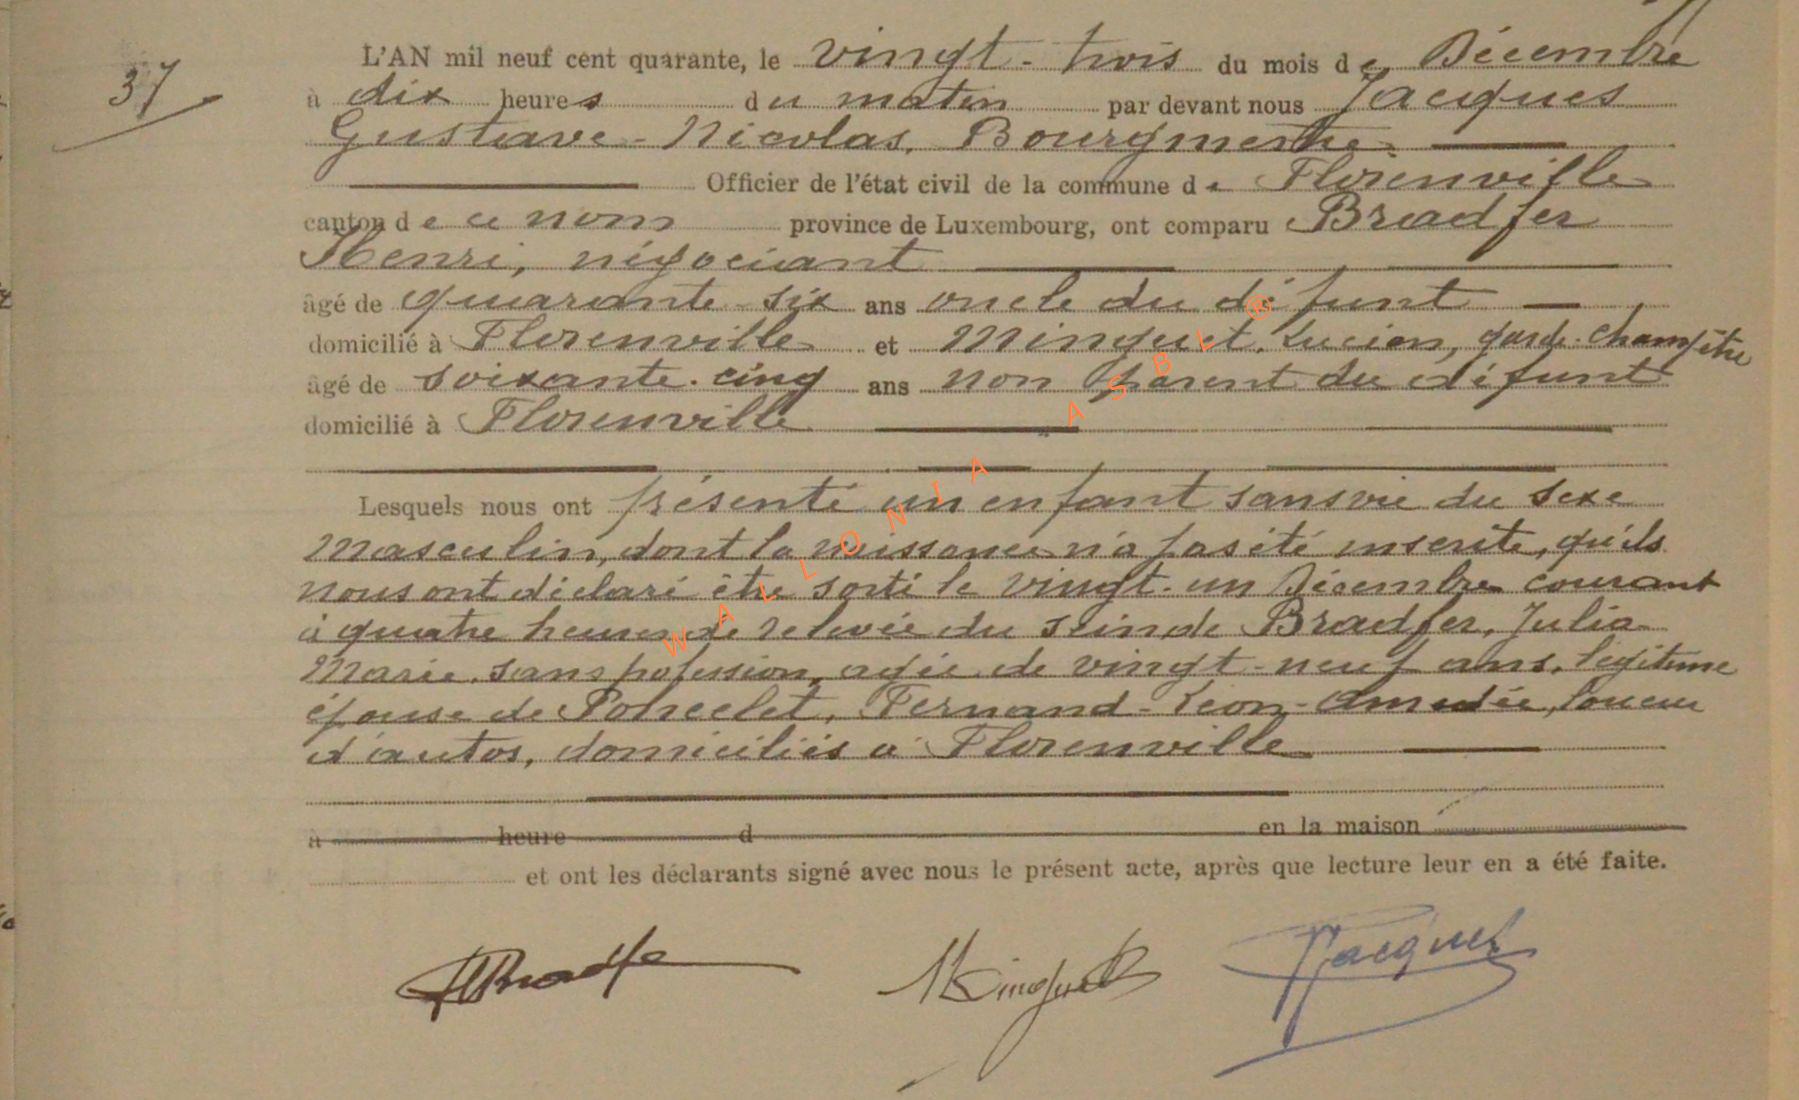 37
L'AN mil neuf cent quarante, le vingt-trois du mois de Décembre
à dix heures du matin par devant nous Jacques
Gustave-Nicolas, Bourgmestre
Officier de l'état civil de la commune de Florenville
canton de ce nom province de Luxembourg, ont comparu Bradfer
Henri, négociant
âgé de quarante-six ans oncle du défunt
domicilié à Florenville et Minguet, Lucien, garde-champêtre
âgé de soixante-cinq ans non parent du défunt
domicilié à Florenville
Lesquels nous ont présenté un enfant sans vie du sexe
masculin, dont la naissance n'a pas été inscrite, qu'ils
nous ont déclaré être sorti le vingt-un Décembre courant
à quatre heures de relevée du sein de Bradfer, Julia
Marie, sans profession, agée de vingt-neuf ans, légitime
épouse de Poncelet, Fernand-Léon-Amedée, loueur
d'autos, domiciliés à Florenville
à heure d en la maison
et ont les déclarants signé avec nous le présent acte, après que lecture leur en a été faite.
HBradfer Minguet Jacques
WALLONIA ASBL ®